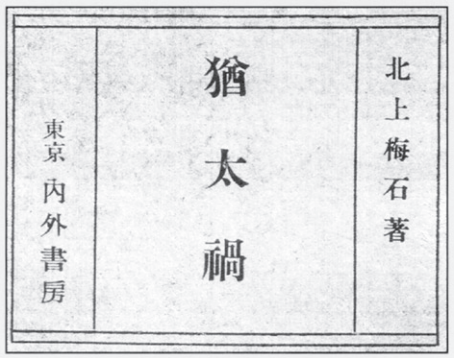 北上梅石著
猶太禍
東京 內外書房